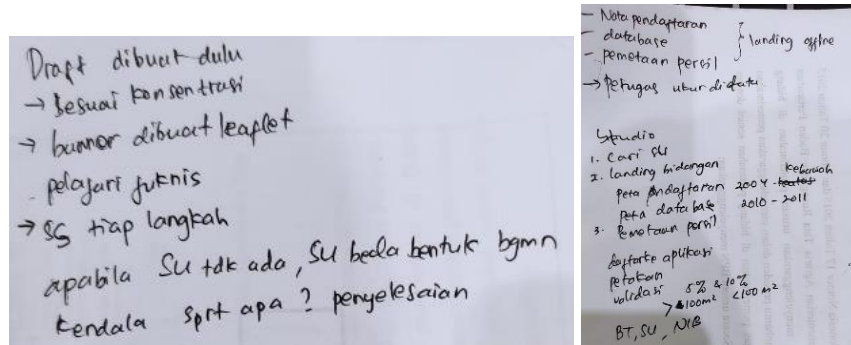 Draft dibuat dulu
→ Sesuai konsentrasi
→ banner dibuat leaflet
pelajari juknis
→ SS tiap langkah
apabila SU tdk ada, SU beda bentuk bgmn
kendala sprt apa? penyelesaian
- Nota pendaftaran
- database
- pemetaan persil
landing offline
→ Petugas ukur didata
Studio
1. Cari SU
2. landing bidangan
Peta pendaftaran 2004 kebawah
Peta database 2010 - 2011
3. Pemetaan persil
aplikasi
petakan
validasi 5% & 10%
>100m² <100m²
BT, SU, NIB